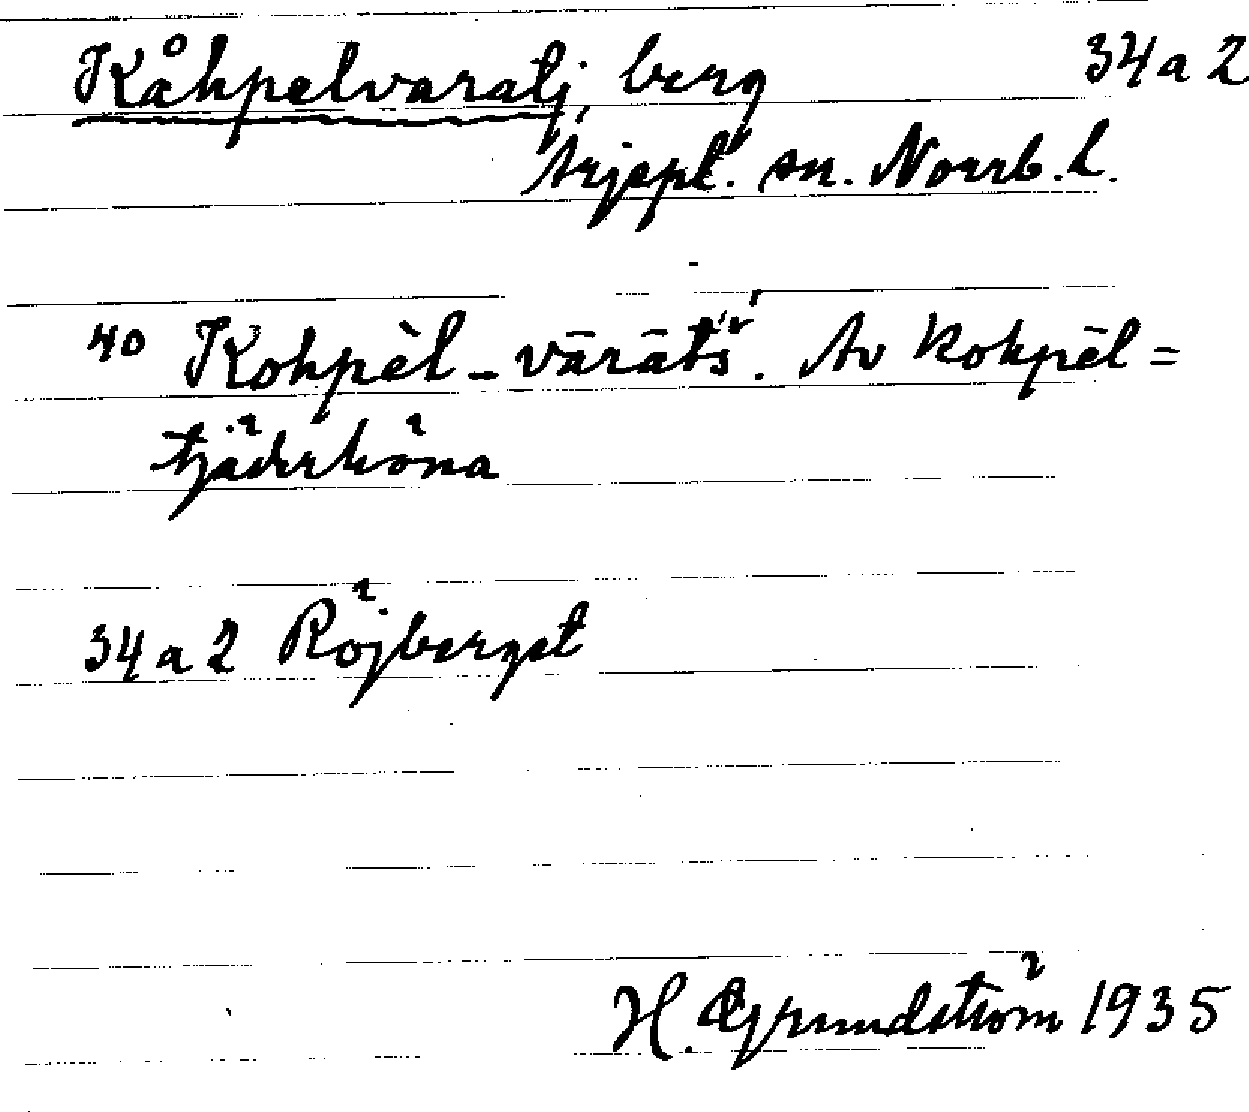 Kåhpelvaratj, berg 34a2
Arjepl. sn. Norrb. L.
40 Kohpèl-vārāts̓̌. Av kohpēl =
tjäderhöna
34a2 Röjberget
H. Grundström 1935